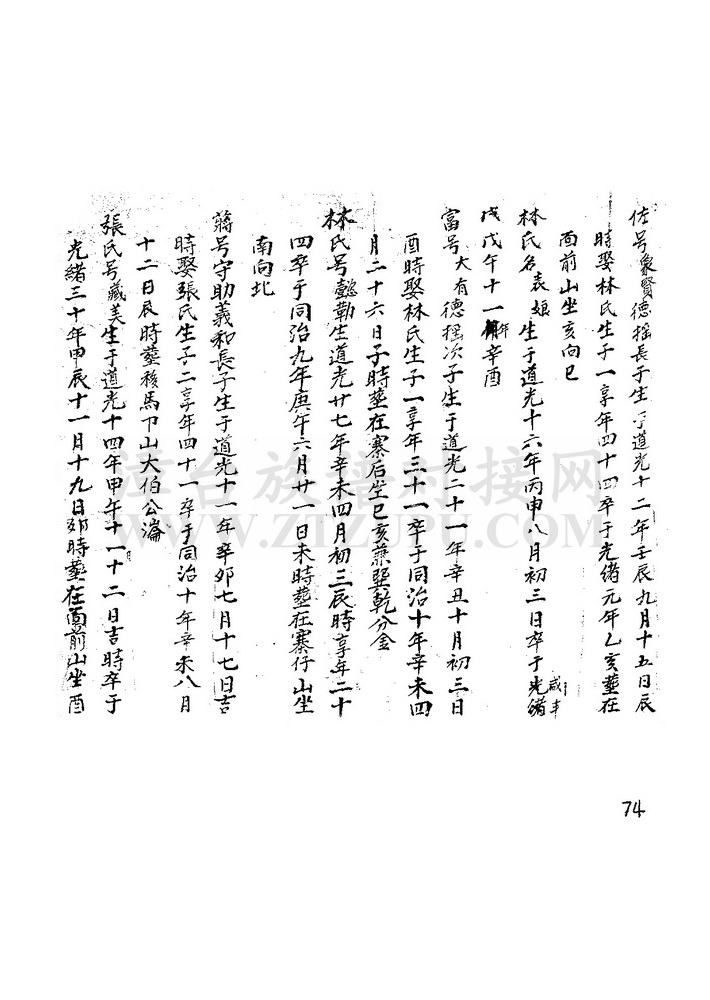 佐号象賢德摇長子生于道光十二年壬辰九月十五日辰
時娶林氏生子一享年四十四卒于光緒元年乙亥塟在
面前山坐亥向巳
林氏名表娘生于道光十六年丙申八月初三日卒于光緒
咸丰
戊戊午十一年辛酉
富号大有德摇次子生于道光二十一年辛丑十月初三日
酉時娶林氏生子一享年三十一卒于同治十年辛未四
月二十六日子時塟在寨后坐巳亥兼巽乾分金
林氏号懿勤生道光廿七年辛未四月初三辰時享年二十
四卒于同治九年庚午六月廿一日未時塟在寨仔山坐
南向北
蒋号守助義和長子生于道光十一年辛卯七月十七日吉
時娶張氏生子二享年四十一卒于同治十年辛未八月
十二日辰時塟移馬下山大伯公崙
張氏号藏美生于道光十四年甲午十一十二日吉時卒于
光緒三十年甲辰十一月十九日卯時塟在面前山坐酉
74
漳台族譜对接网
WWW.ZIZUPU.COM